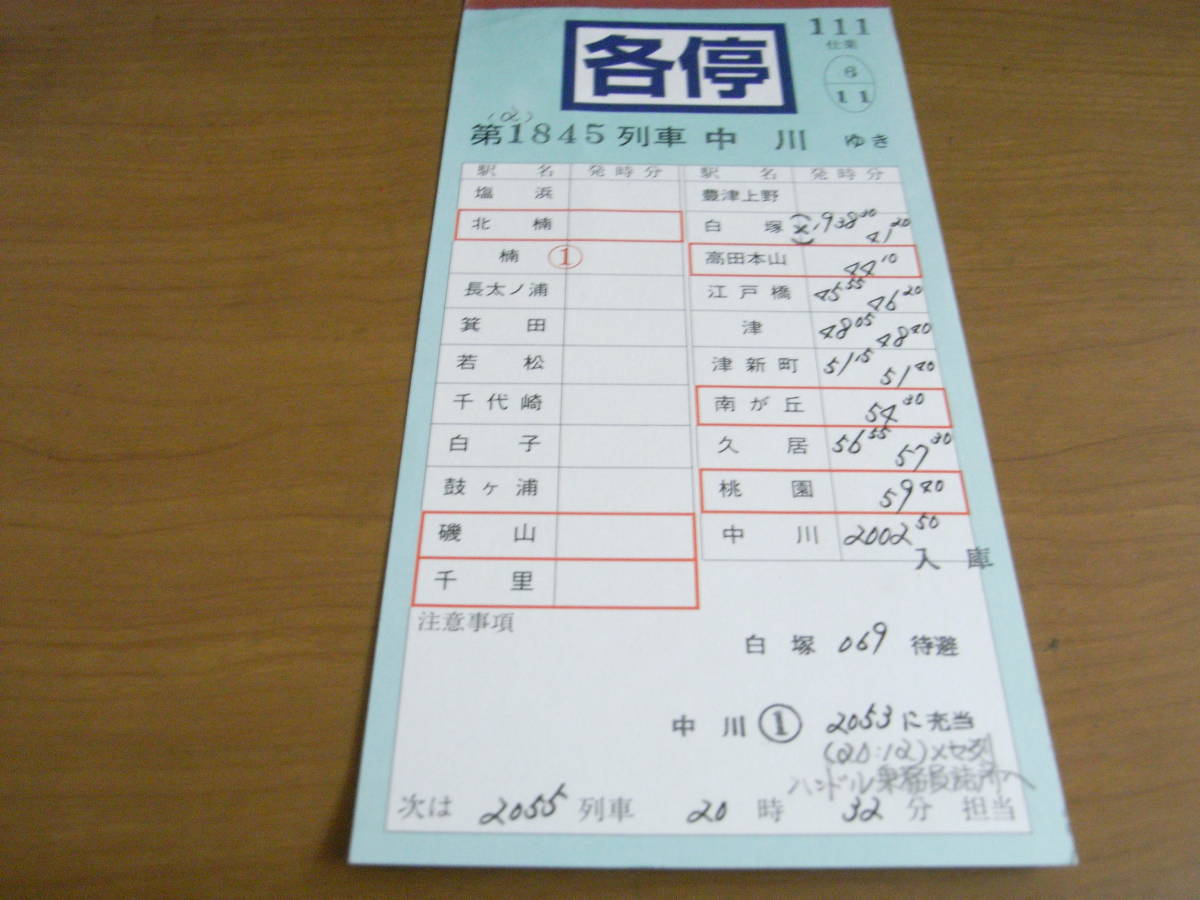 各停
111
仕業
6
11
(2)
第1845列車 中川 ゆき
駅名 発時分
塩浜
北楠
楠 ①
長太ノ浦
箕田
若松
千代崎
白子
鼓ヶ浦
磯山
千里
駅名 発時分
豊津上野
白塚 (×) 1938 30 41 20
高田本山 44 10
江戸橋 45 55 46 20
津 48 05 48 40
津新町 51 15 51 40
南が丘 54 30
久居 56 55 57 30
桃園 59 40
中川 2002 50
入庫
注意事項
白塚 069 待避
中川 ① 2053に充当
ハンドル乗務員詰所へ
次は 2055 列車 20 時 32 分 担当